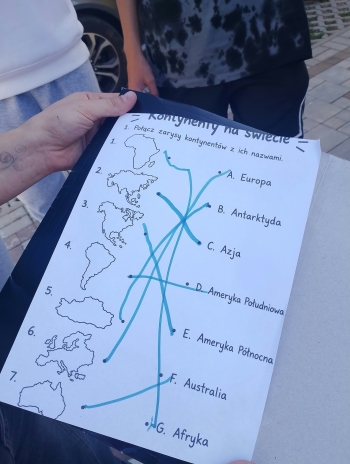 Kontynenty na świecie
1. Połącz zarysy kontynentów z ich nazwami.
1.
2.
3.
4.
5.
6.
7.
A. Europa
B. Antarktyda
C. Azja
D. Ameryka Południowa
E. Ameryka Północna
F. Australia
G. Afryka